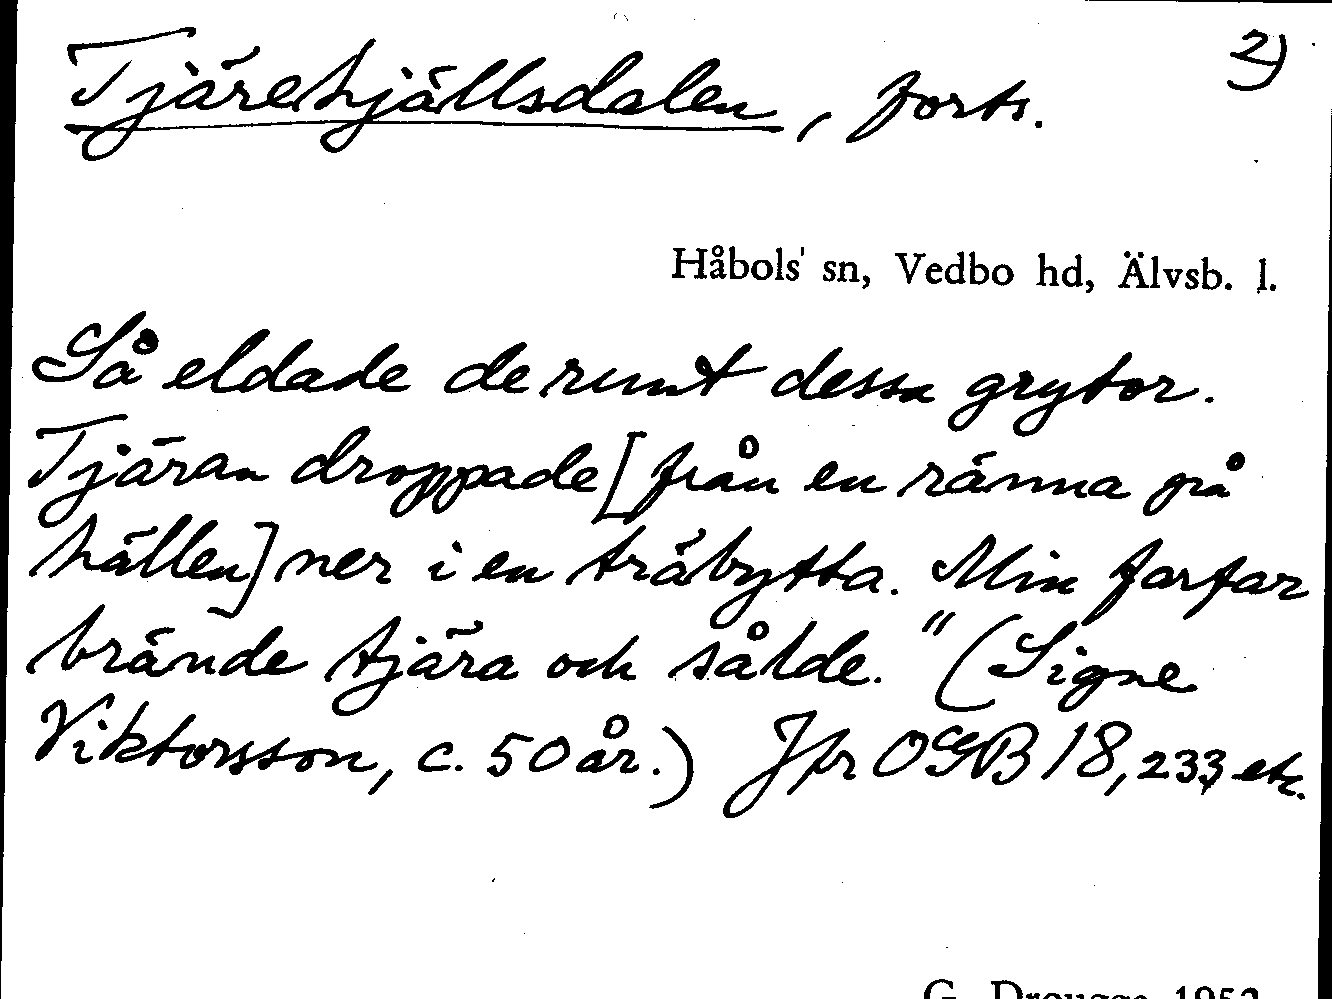 2)
Tjärehjällsdalen, forts.
Håbols' sn, Vedbo hd, Älvsb. l.
Så eldade de runt dessa grytor.
Tjäran droppade [från en ränna på
hällen] ner i en träbytta. Min farfar
brände tjära och sålde." (Signe
Viktorsson, c. 50 år.) Jfr OGB 18, 233 etc.
G. Drougge 1952